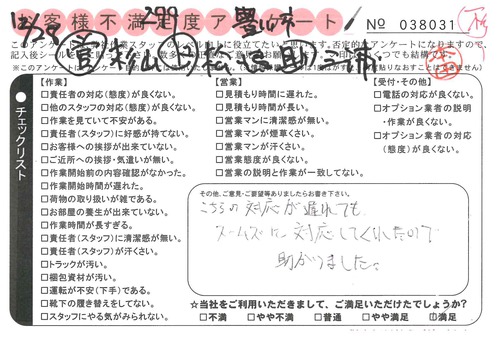 お客様不満足度アンケート
№ 038031
チェックリスト
【作業】
□責任者の対応(態度)が良くない。
□他のスタッフの対応(態度)が良くない。
□作業を見ていて不安がある。
□責任者(スタッフ)に好感が持てない。
□お客様への挨拶が出来ていない。
□ご近所への挨拶・気遣いが無い。
□作業開始前の内容確認がなかった。
□作業開始時間が遅れた。
□荷物の取り扱いが雑である。
□お部屋の養生が出来ていない。
□作業時間が長すぎる。
□責任者(スタッフ)に清潔感が無い。
□責任者(スタッフ)が汗くさい。
□トラックが汚い。
□梱包資材が汚い。
□運転が不安(下手)である。
□靴下の履き替えをしてない。
□スタッフにやる気がみられない。
【営業】
□見積もり時間に遅れた。
□見積もり時間が長い。
□営業マンに清潔感が無い。
□営業マンが煙草くさい。
□営業マンが汗くさい。
□営業態度が良くない。
□営業の説明と作業が一致してない。
【受付・その他】
□電話の対応が良くない。
□オプション業者の説明
・作業が良くない。
□オプション業者の対応
(態度)が良くない。
その他、ご意見・ご要望等ありましたらお書き下さい。
こちらの対応が遅れても、
スムーズに対応してくれたので
助かりました。
☆当社をご利用いただきまして、ご満足いただけたでしょうか?
□不満 □やや不満 □普通 □やや満足 □満足